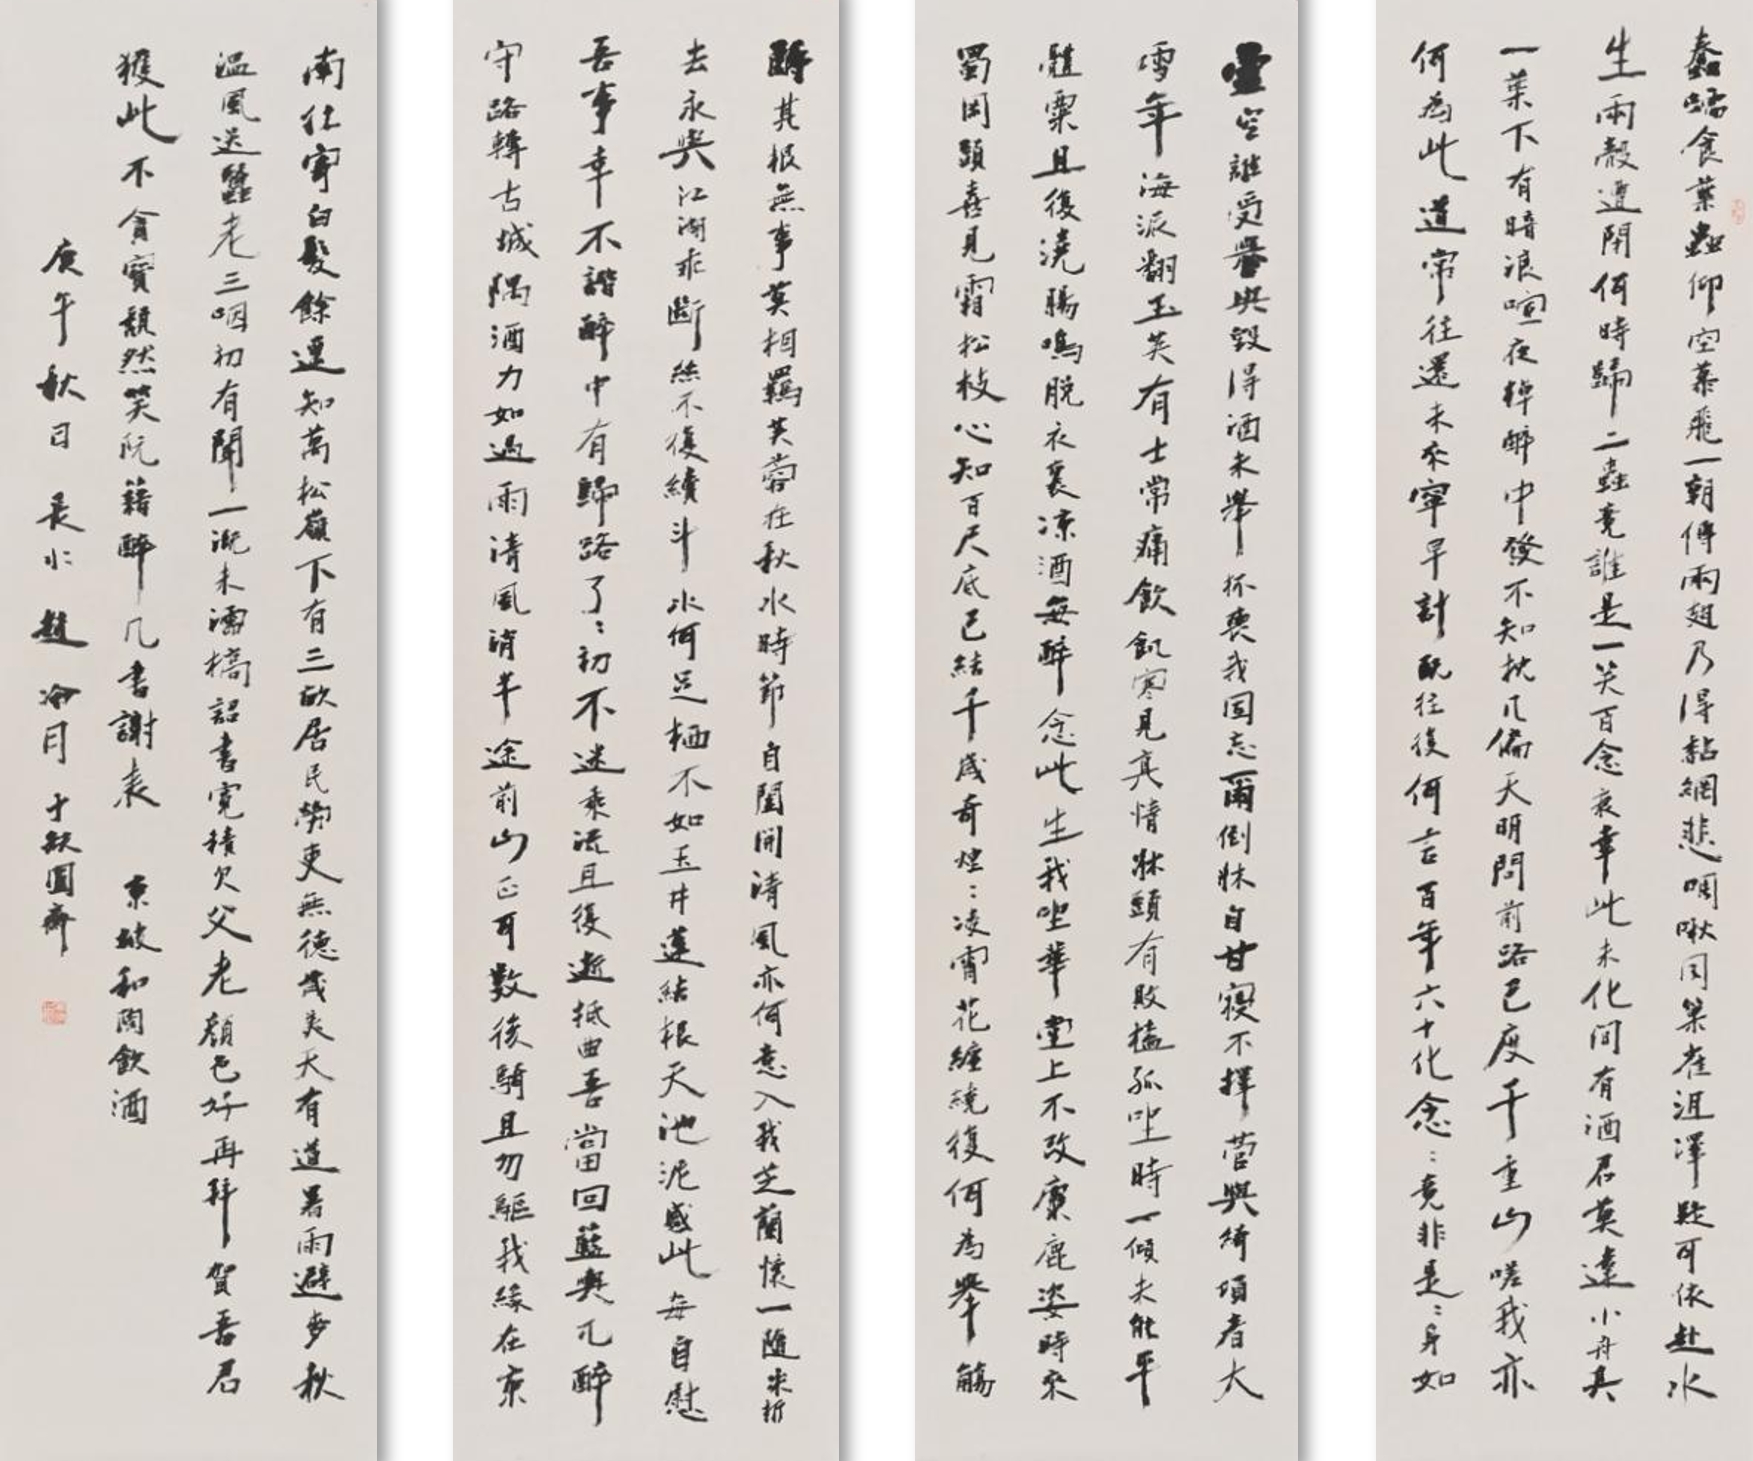 蠢蠕食葉蟲仰空慕飛一朝傳兩翅乃得黏網悲啁啾同巢雀沮澤疑可依赴水
生兩殼遭閉何時歸二蟲竟誰是一笑百念衰幸此未化間有酒君莫違小舟真
一葉下有暗浪喧夜棹醉中發不知枕几偏天明問前路已度千重山嗟我亦
何為此道常往還未來寧早計既往復何言百年六十化念〻竟非是〻身如
虛空誰受譽與毀得酒未舉杯喪我固忘爾倒牀自甘寢不擇菅與綺頃者大
雪年海派翻玉英有士常痛飲飢寒見真情牀頭有敗榼孤坐時一傾未能平
體粟且復澆腸鳴脫衣裹凍酒每醉念此生我坐華堂上不改麋鹿姿時來
蜀岡頭喜見霜松枝心知百尺底已結千歲奇煌〻凌霄花纏繞復何為舉觴
酹其根無事莫相羈芙蓉在秋水時節自闔開清風亦何意入我芝蘭懷一隨采折
去永與江湖乖斷絲不復續斗水何足栖不如玉井蓮結根天池泥感此每自慰
吾事幸不諧醉中有歸路了〻初不迷乘流且復逝抵曲吾當回藍輿兀醉
守路轉古城隅酒力如過雨清風消半途前山正可數後騎且勿驅我緣在東
南往寄白髮餘遙知萬松嶺下有三畝居民勞吏無德歲美天有道暑雨避麥秋
溫風送蠶老三咽初有聞一溉未濡槁詔書寬積欠父老顏色好再拜賀吾君
獲此不貪寶頹然笑阮籍醉几書謝表 東坡和陶飲酒
庚午秋日 長水 趙冷月 于缺圓齋